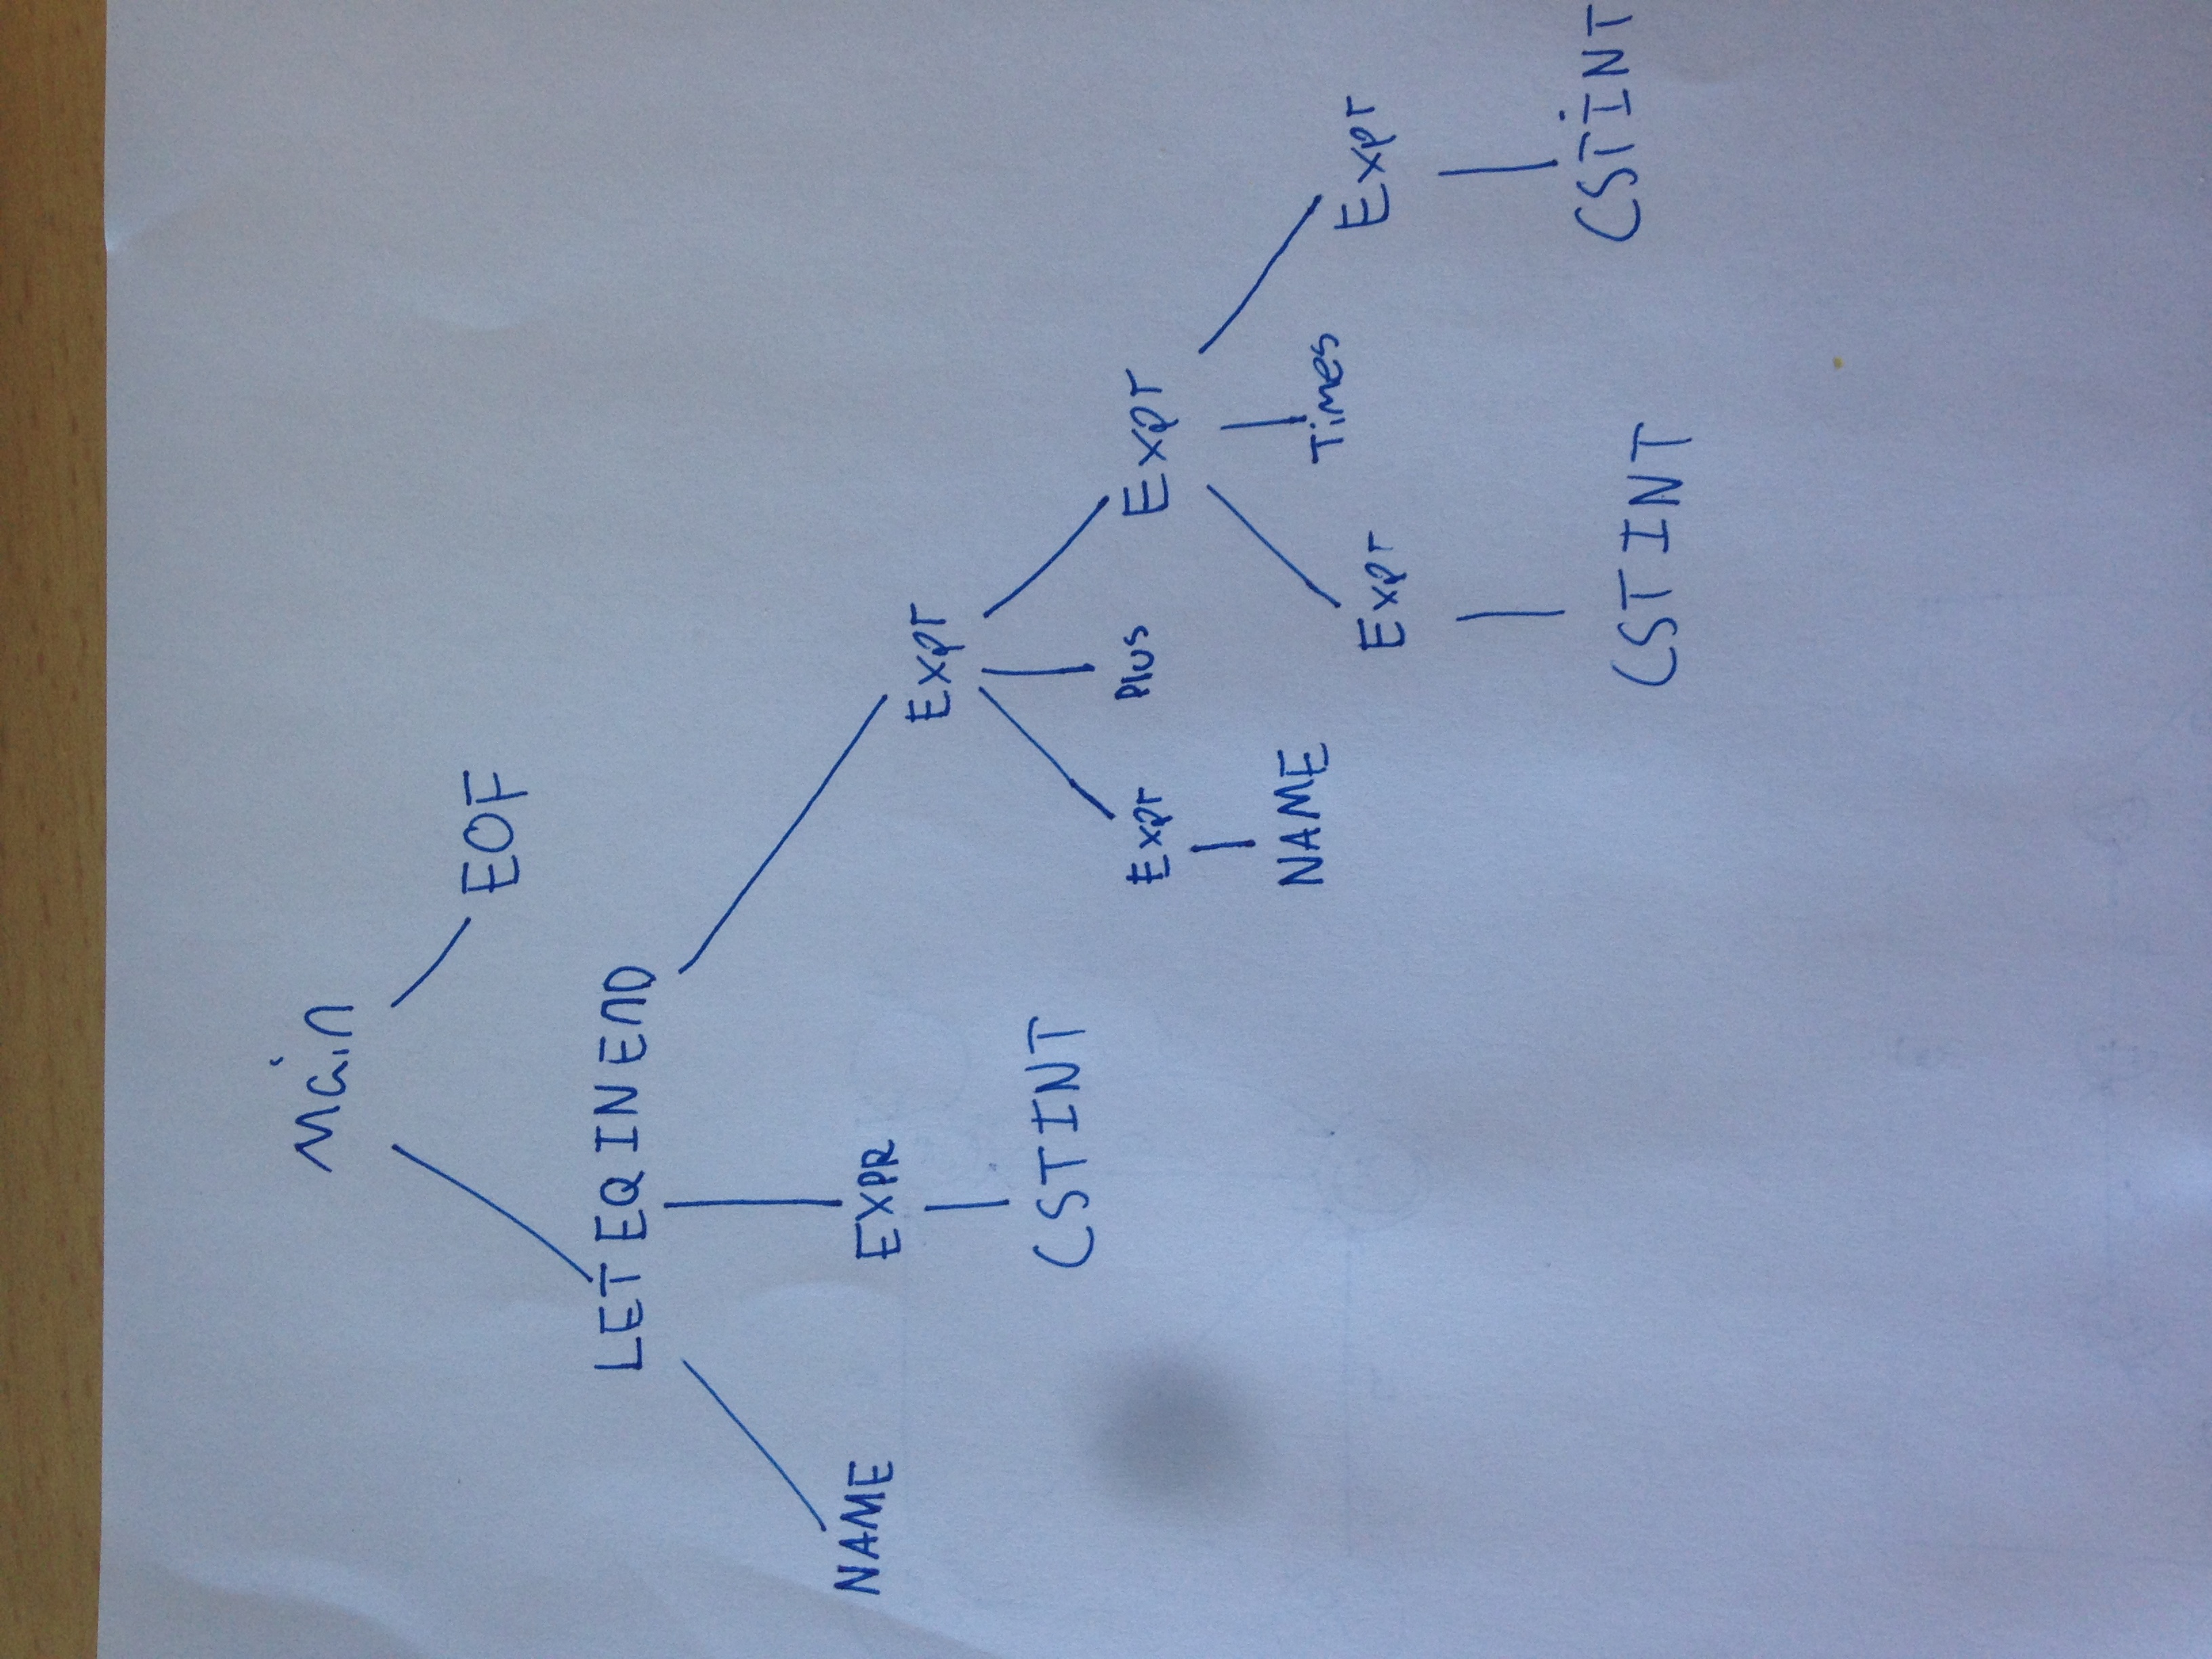 Main
EOF
LET EQ IN END
NAME EXPR
Expr
CSTINT
Expr Plus Expr
NAME
Times
Expr Expr
CSTINT
CSTINT